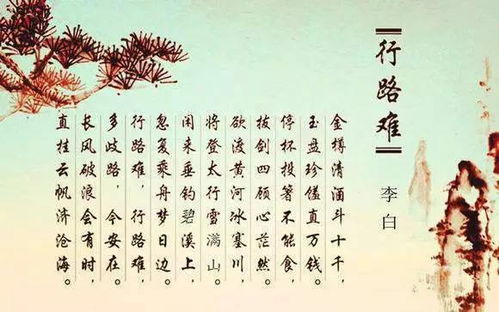 行路难
李白
金樽清酒斗十千，
玉盘珍馐直万钱。
停杯投箸不能食，
拔剑四顾心茫然。
欲渡黄河冰塞川，
将登太行雪满山。
闲来垂钓碧溪上，
忽复乘舟梦日边。
行路难，行路难，
多歧路，今安在。
长风破浪会有时，
直挂云帆济沧海。